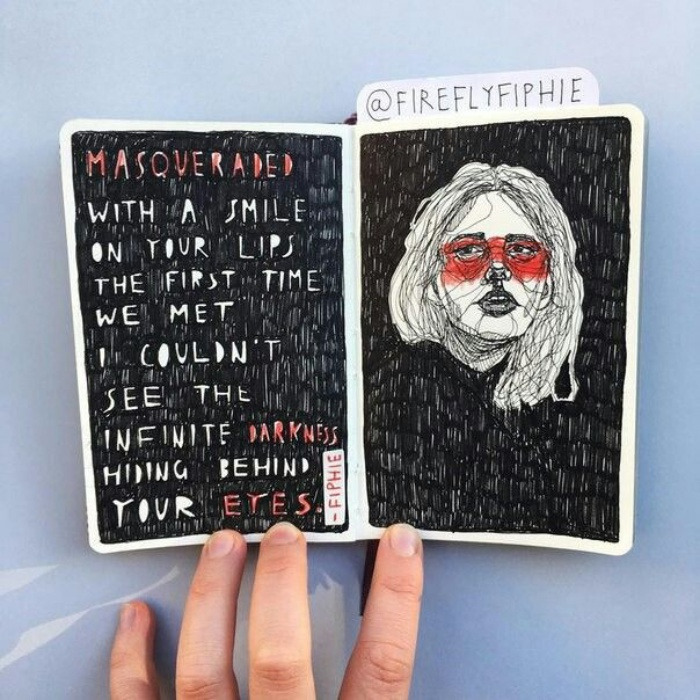 @FIREFLYFIPHIE
MASQUERADED
WITH A SMILE
ON YOUR LIPS
THE FIRST TIME
WE MET
I COULDN'T
SEE THE
INFINITE DARKNESS
HIDING BEHIND
YOUR EYES.
-FIPHIE